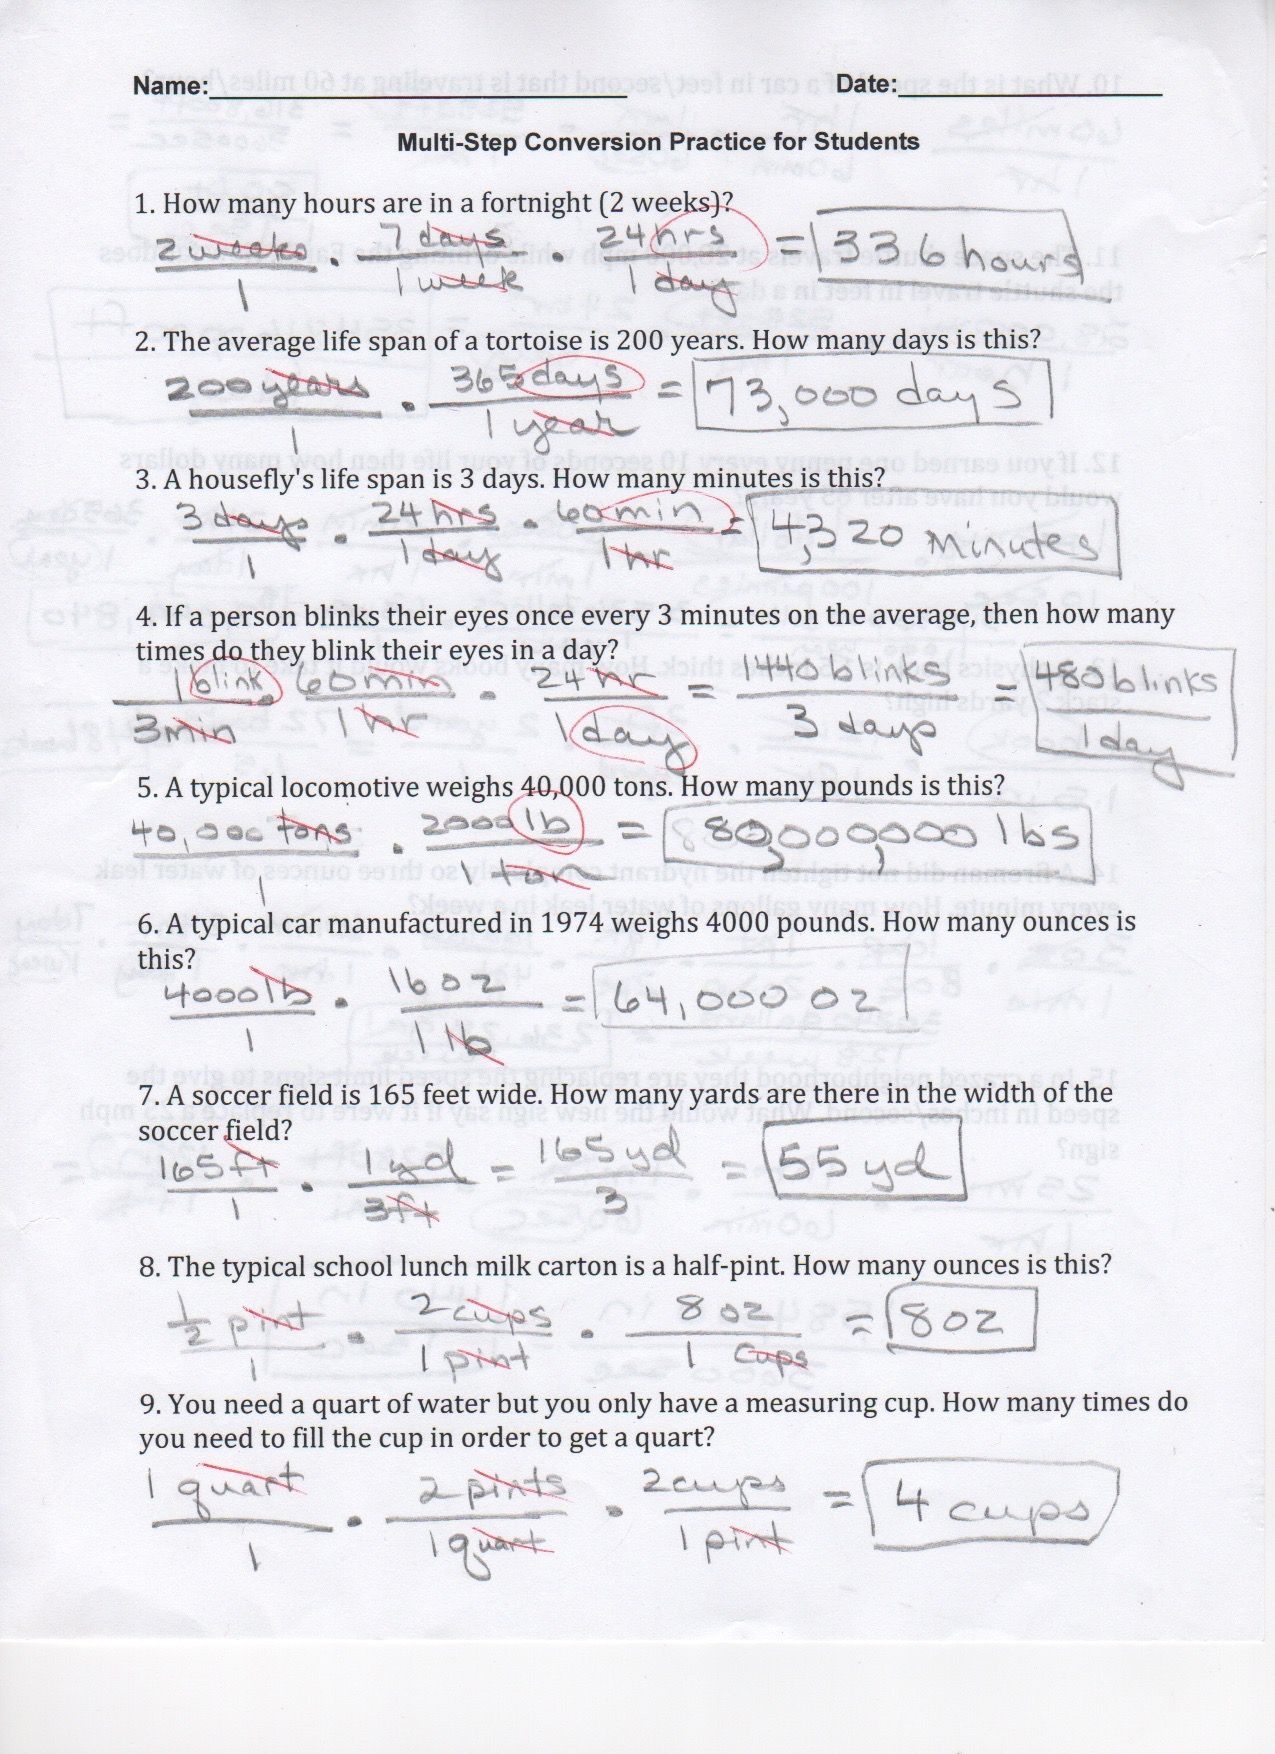 Name:____________ Date:____________
Multi-Step Conversion Practice for Students
1. How many hours are in a fortnight (2 weeks)?
2 weeks/1 · 7 days/1 week · 24 hrs/1 day = 336 hours
2. The average life span of a tortoise is 200 years. How many days is this?
200 years/1 · 365 days/1 year = 73,000 days
3. A housefly's life span is 3 days. How many minutes is this?
3 days/1 · 24 hrs/1 day · 60 min/1 hr = 4,320 Minutes
4. If a person blinks their eyes once every 3 minutes on the average, then how many
times do they blink their eyes in a day?
1 blink/3 min · 60 min/1 hr · 24 hr/1 day = 1440 blinks/3 days = 480 blinks/1 day
5. A typical locomotive weighs 40,000 tons. How many pounds is this?
40,000 tons/1 · 2000 lb/1 ton = 80,000,000 lbs
6. A typical car manufactured in 1974 weighs 4000 pounds. How many ounces is
this?
4000 lb/1 · 16 oz/1 lb = 64,000 oz
7. A soccer field is 165 feet wide. How many yards are there in the width of the
soccer field?
165 ft/1 · 1 yd/3 ft = 165 yd/3 = 55 yd
8. The typical school lunch milk carton is a half-pint. How many ounces is this?
1/2 pint/1 · 2 cups/1 pint · 8 oz/1 cups = 8 oz
9. You need a quart of water but you only have a measuring cup. How many times do
you need to fill the cup in order to get a quart?
1 quart/1 · 2 pints/1 quart · 2 cups/1 pint = 4 cups